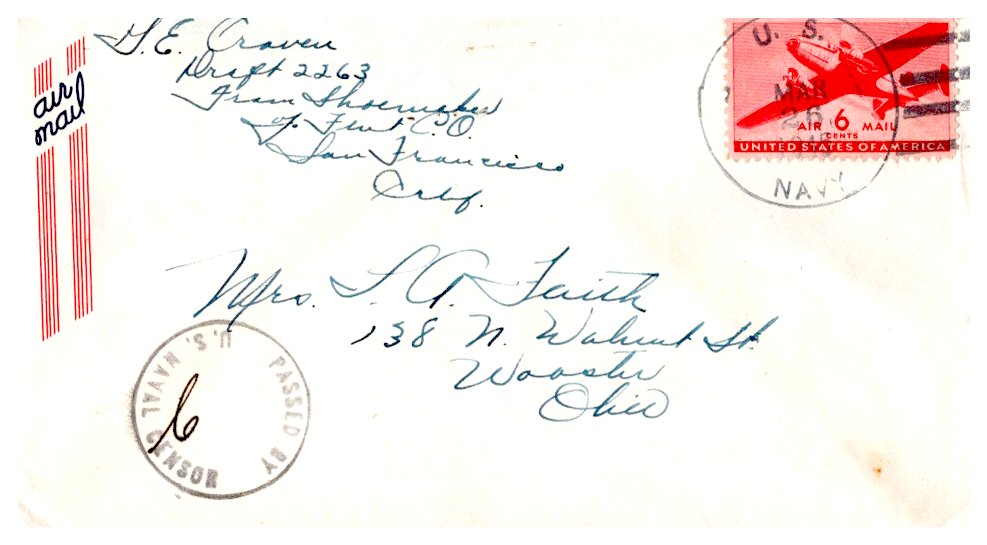 G. E. Craven
Draft 2263
Tram Shoemaker
℅ Fleet P.O.
San Francisco
Calif.
air
mail
U. S.
MAR
26
1945
NAVY
AIR 6 MAIL
CENTS
UNITED STATES OF AMERICA
Mrs. L. A. Faith
138 N. Walnut St.
Wooster
Ohio
PASSED BY
U.S. NAVAL CENSOR